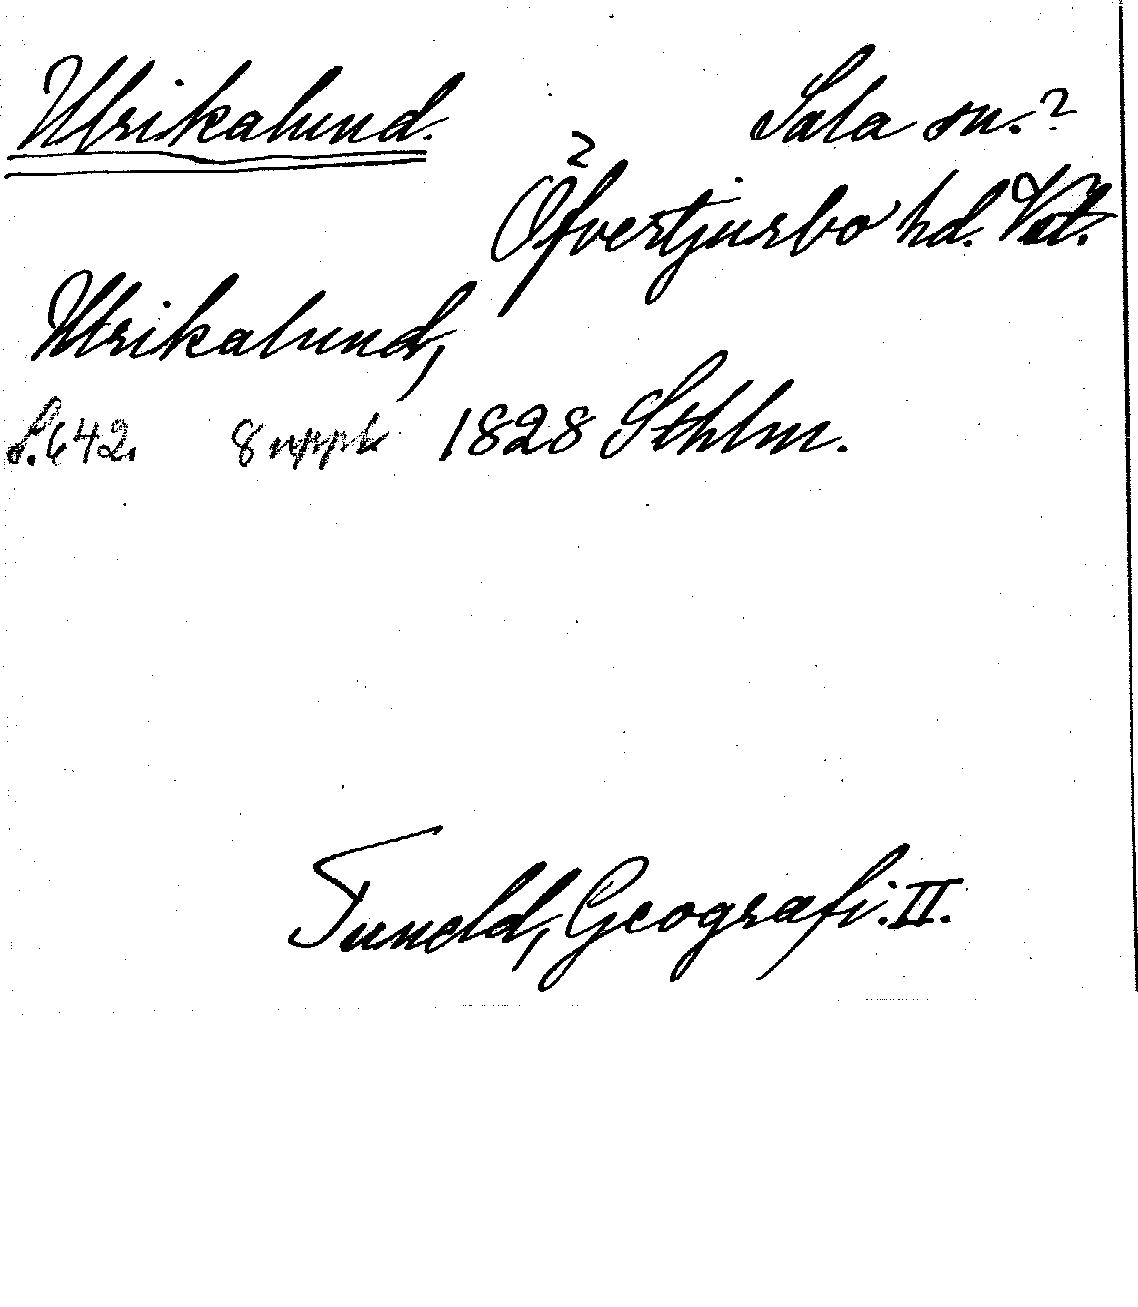 Ulrikalund. Sala sn.?
? Öfvertjurbo hd. Vstl.
Ulrikalund,
s. 642. 8 uppl. 1828 Sthlm.
Tuneld, Geografi. II.